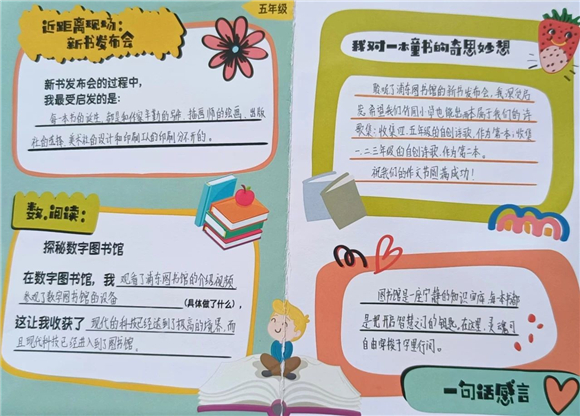 近距离现场:
新书发布会
五年级
新书发布会的过程中,
我最受启发的是:
每一本书的诞生,都是和作家辛勤的写作,插画师的绘画,出版
社的选择,美术社的设计和印刷工人的印刷分不开的。
数字阅读:
探秘数字图书馆
在数字图书馆,我 观看了浦东图书馆的介绍视频
参观了数字图书馆的设备 (具体做了什么),
这让我收获了 现代的科技已经达到了极高的境界,而
且现代科技已经进入到了图书馆。
我对一本童书的奇思妙想
散观了浦东图书馆的新书发布会,我深受启
发,希望我们竹园小学也能出一本属于我们的诗
歌集:收集四、五年级的自创诗歌,作为第一本;收集
一、二、三年级的自创诗歌,作为第二本。
祝我们的作文节圆满成功!
图书馆是一座宁静的知识圣庙,每本书都
是把开启智慧之门的钥匙。在这里,灵魂可
自由穿梭于字里行间。
一句话感言